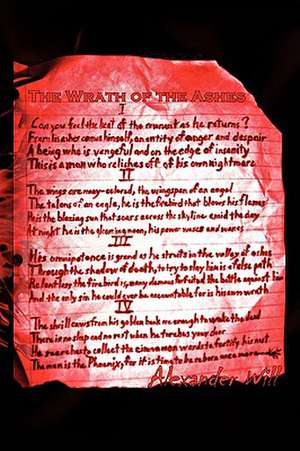 The Wrath of the Ashes
I
Can you feel the heat of the moment as he returns?
From his ashes comes himself, an entity of anger and despair
A being who is vengeful and on the edge of insanity
This is a man who reliches off of his own nightmare
II
The wings are many-colored, the wingspan of an angel
The talons of an eagle, he is the firebird that blows his flames
He is the blazing sun that soars across the skyline amid the day
At night he is the gleaming moon, his power waxes and wanes
III
His omnipotence is grand as he struts in the valley of ashes
Through the shadow of death, to try to slay him is a false path
Relentless the fire bird is, many demons forfeited the battle against him
And the only sin he could ever be accountable for is his own wrath
IV
The shrill caws from his golden beak are enough to wake the dead
There is no sleep and no rest when he torches your door
He soars here to collect the cinnamon wards to fortify his nest
The man is the Phoenix, for it is time to be reborn once more
Alexander Will